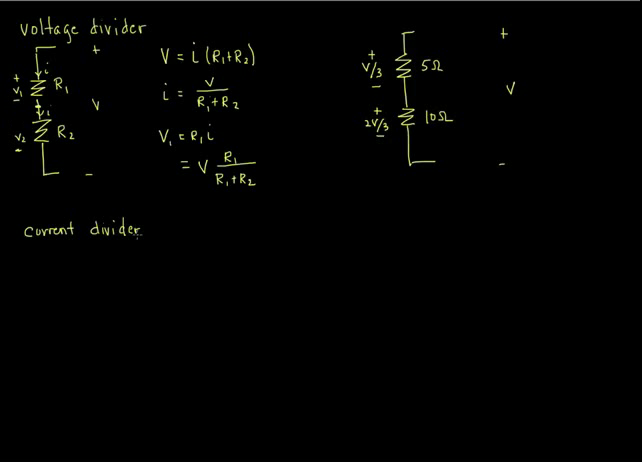 voltage divider
+
i
+
V₁
−
R₁
i
V
V₂
−
R₂
−
V = i (R₁+R₂)
i = V / R₁+R₂
V₁ = R₁ i
= V R₁ / R₁+R₂
+
+
V/3
−
5Ω
V
+
2V/3
−
10Ω
−
current divider